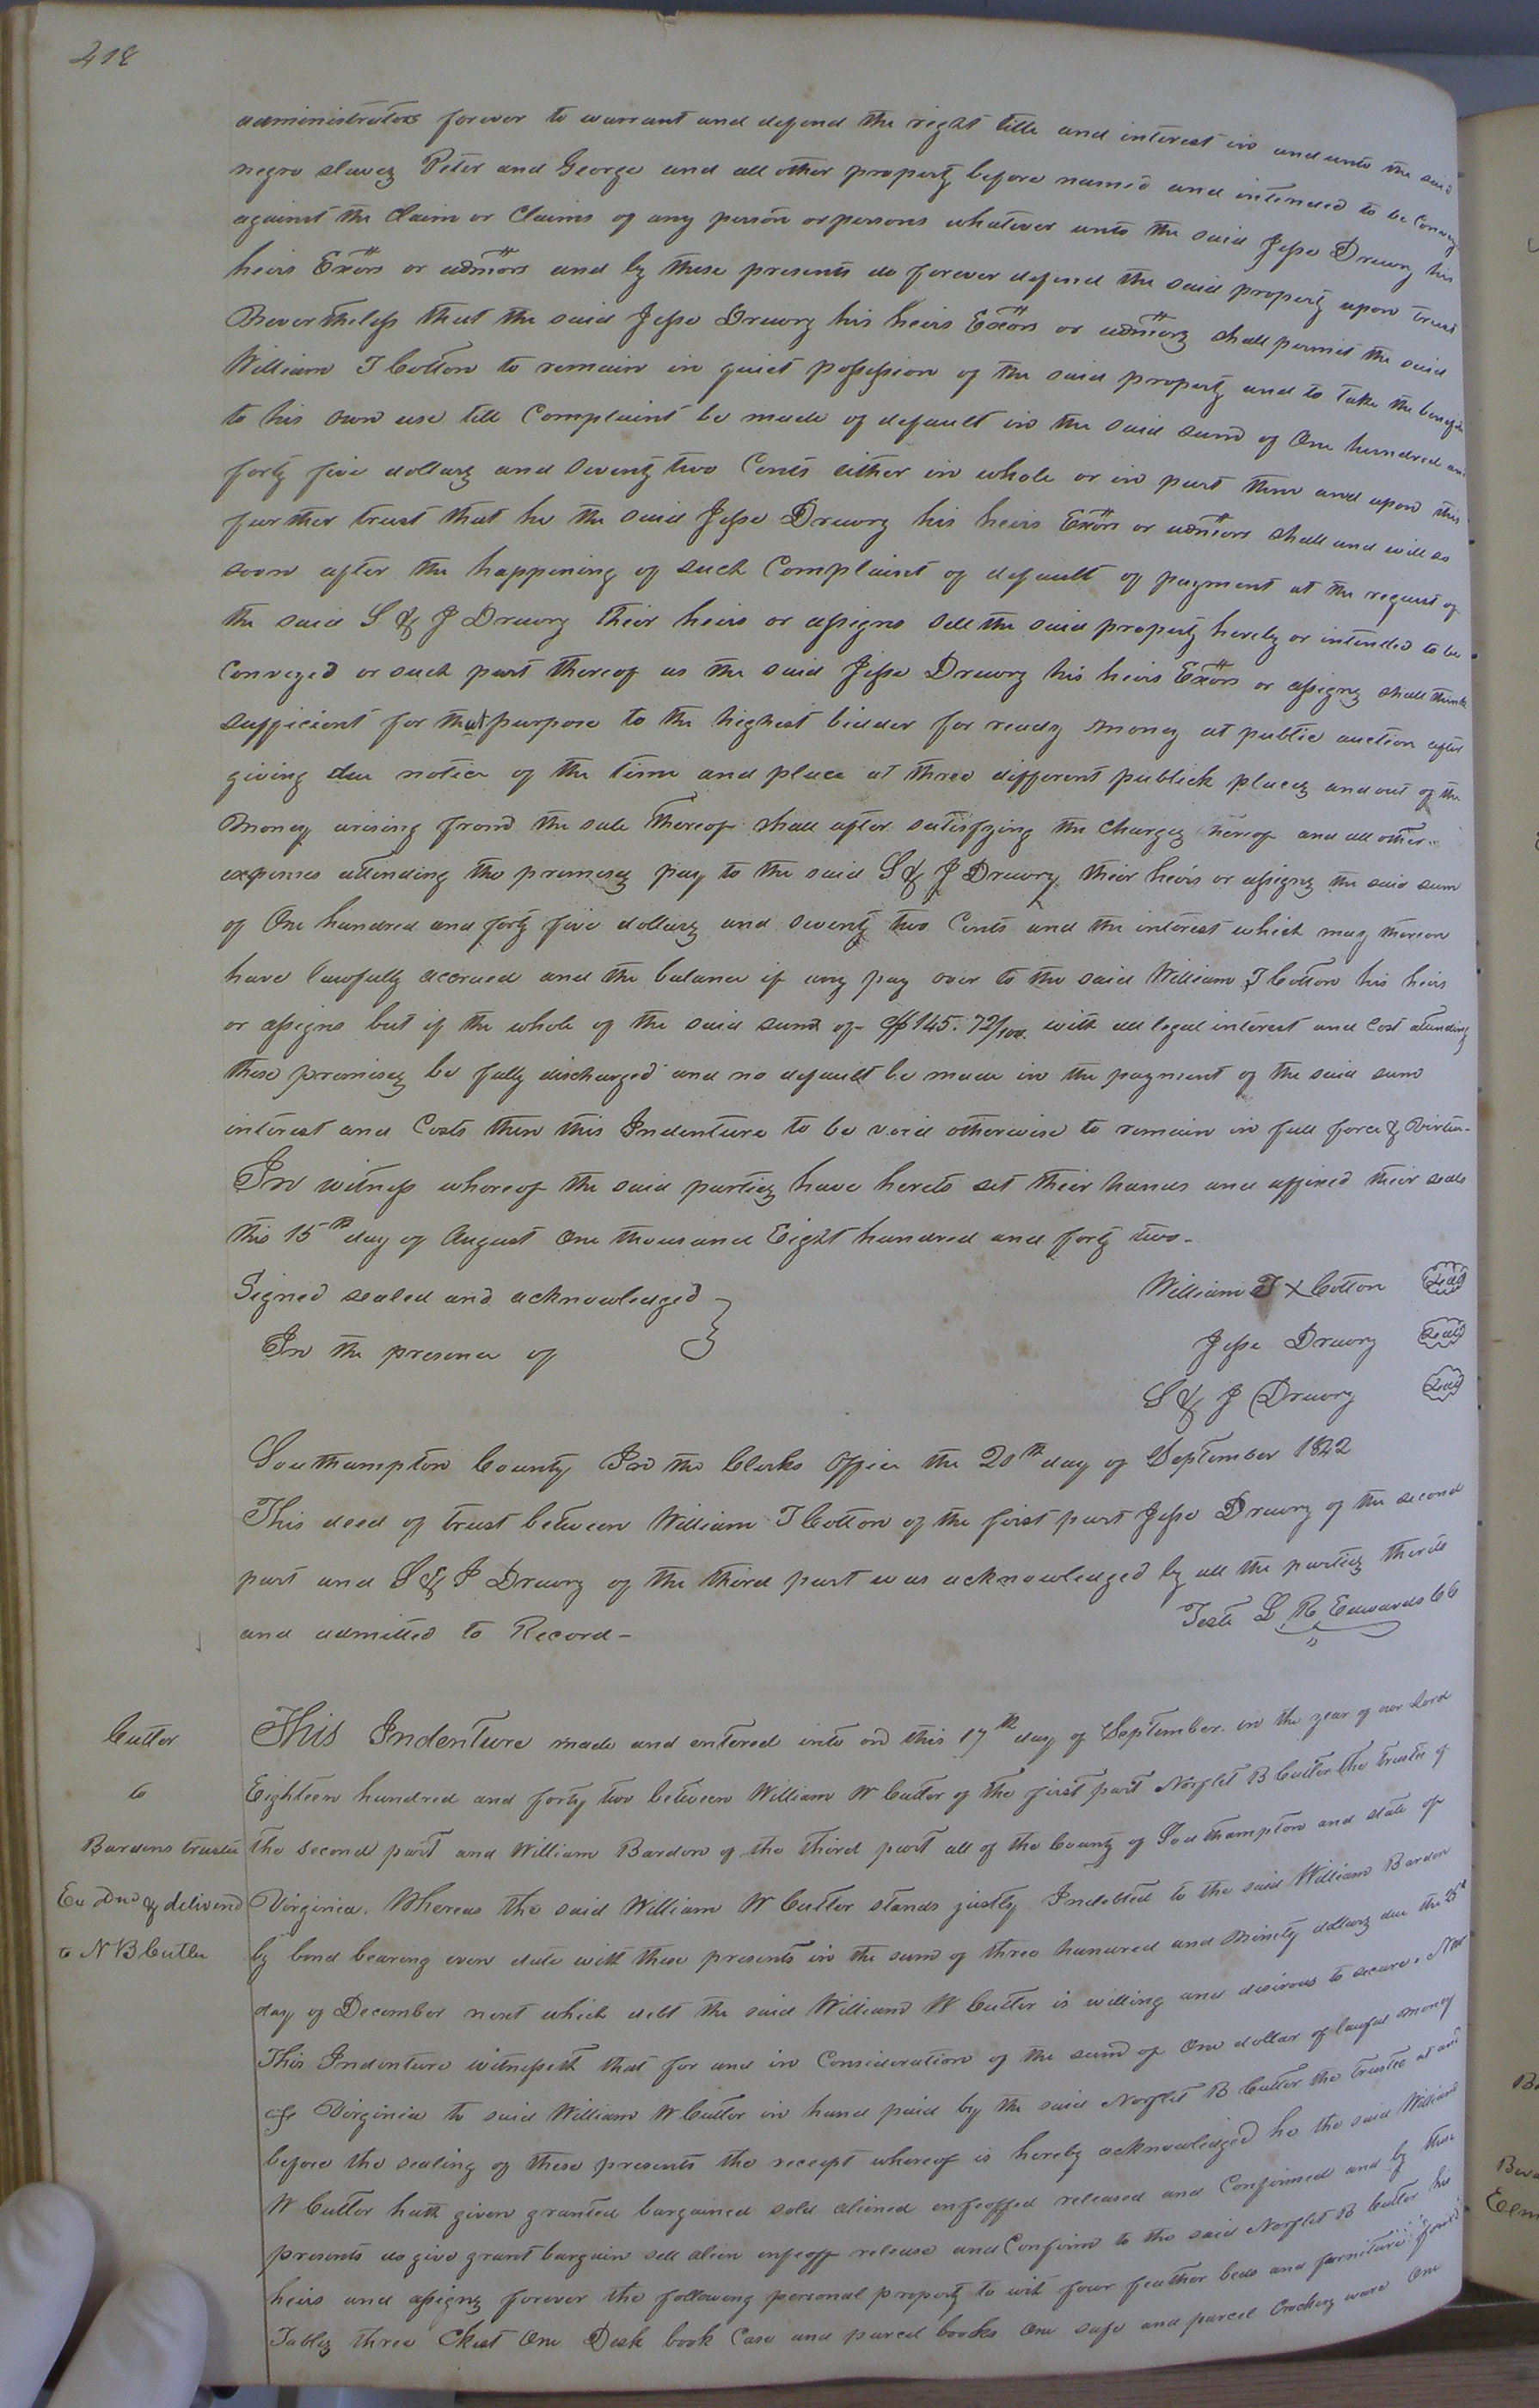 218
administrators forever to warrant and defend the right title and interest in and unto the said
negro slaves Peter and George and all other property before named and intended to be Convey
against the Claim or Claims of any person or persons whatever unto the said Jesse Drewry his
heirs Exors or admors and by these presents do forever defend the said property upon trust
Nevertheless that the said Jesse Drewry his heirs Exors or admors shall permit the said
William T Cotton to remain in quiet possession of the said property and to take the benefit
to his own use till Complaint be made of default in the said sum of One hundred and
forty five dollars and seventy two Cents either in whole or in part then and upon this
further trust that he the said Jesse Drewry his heirs Exors or admors shall and will as
soon after the happening of such Complaint of default of payment at the request of
the said S & J Drewry their heirs or assigns sell the said property hereby or intended to be
Conveyed or such part thereof as the said Jesse Drewry his heirs Exors or assigns shall think
sufficient for that purpose to the highest bidder for ready money at public auction after
giving due notice of the time and place at three different publick places and out of the
money arising from the sale thereof shall after satisfying the charges thereof and all other
expenses attending the premises pay to the said S & J Drewry their heirs or assigns the said sum
of One hundred and forty five dollars and seventy two Cents and the interest which may thereon
have lawfully accrued and the balance if any pay over to the said William T Cotton his heirs
or assigns but if the whole of the said sum of $145.72/100 with all legal interest and Cost attending
these premises be fully discharged and no default be made in the payment of the said sum
interest and Costs then this Indenture to be void otherwise to remain in full force & Virtue-
In witness whereof the said parties have hereto set their hands and affixed their seals
this 15th day of August One thousand Eight hundred and forty two-
Signed sealed and acknowledged }
In the presence of
William T X Cotton Seal
Jesse Drewry Seal
S & J Drewry Seal
Southampton County In the Clerks Office the 20th day of September 1842
This deed of trust between William T Cotton of the first part Jesse Drewry of the second
part and S & J Drewry of the third part was acknowledged by all the parties thereto
and admitted to Record-
Teste L R Edwards CC
Cutler
to
Bardens trustee
Ex and & deliverd
to N B Cutler
This Indenture made and entered into on this 17th day of September in the year of our Lord
Eighteen hundred and forty two between William W Cutler of the first part Norflet B Cutler the trustee of
the second part and William Barden of the third part all of the County of Southampton and state of
Virginia. Whereas the said William W Cutler stands justly Indebted to the said William Barden
by bond bearing even date with these presents in the sum of three hundred and Ninety dollars due the 25th
day of December next which debt the said William W Cutler is willing and desirous to secure. Now
This Indenture witnesseth that for and in Consideration of the sum of One dollar of lawful money
of Virginia to said William W Cutler in hand paid by the said Norflet B Cutler the trustee at and
before the sealing of these presents the receipt whereof is hereby acknowledged he the said William
W Cutler hath given granted bargained sold aliened enfeoffed released and Confirmed and by these
presents do give grant bargain sell alien enfeoff release and Confirm to the said Norflet B Cutler his
heirs and assigns forever the following personal property to wit four feather beds and furniture
Tables three Chest One Desk book Case and parcel books One safe and parcel Crockery ware One